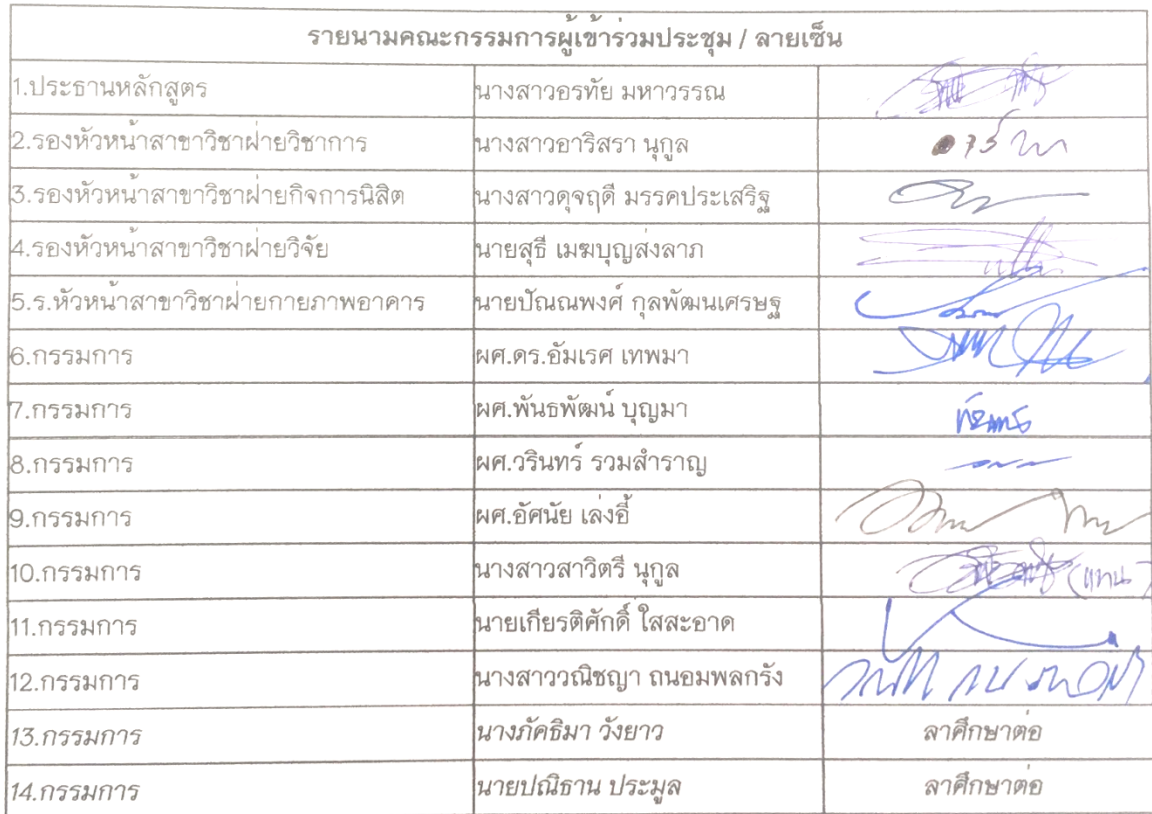 รายนามคณะกรรมการผู้เข้าร่วมประชุม / ลายเซ็น
1.ประธานหลักสูตร นางสาวอรทัย มหาวรรณ
2.รองหัวหน้าสาขาวิชาฝ่ายวิชาการ นางสาวอาริสรา นุกูล
3.รองหัวหน้าสาขาวิชาฝ่ายกิจการนิสิต นางสาวดุจฤดี มรรคประเสริฐ
4.รองหัวหน้าสาขาวิชาฝ่ายวิจัย นายสุธี เมฆบุญส่งลาภ
5.ร.หัวหน้าสาขาวิชาฝ่ายกายภาพอาคาร นายปัณณพงศ์ กุลพัฒนเศรษฐ
6.กรรมการ ผศ.ดร.อัมเรศ เทพมา
7.กรรมการ ผศ.พันธพัฒน์ บุญมา
8.กรรมการ ผศ.วรินทร์ รวมสำราญ
9.กรรมการ ผศ.อัศนัย เล่งอี้
10.กรรมการ นางสาวสาวิตรี นุกูล (แทน)
11.กรรมการ นายเกียรติศักดิ์ ใสสะอาด
12.กรรมการ นางสาววณิชญา ถนอมพลกรัง
13.กรรมการ นางภัคธิมา วังยาว ลาศึกษาต่อ
14.กรรมการ นายปณิธาน ประมูล ลาศึกษาต่อ